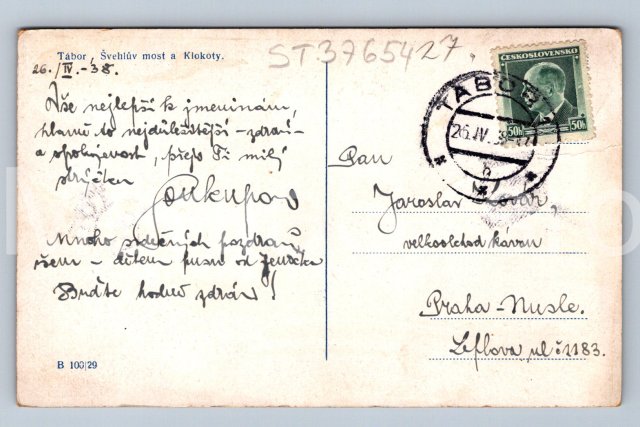 Tábor, Švehlův most a Klokoty.
ST3765427,
26./IV.-38.
ČESKOSLOVENSKO
50h 50h
TÁBOR
26.IV.38
Vše nejlepší k jmeninám,
hlavně to nejdůležitější - zdraví
a spokojenost, přeje Ti milý
strýčku
Soukupovi
Mnoho srdečných pozdravů
všem - dětem pusu od
Buďte hodně zdrávi!
Pan
Jaroslav Kovář,
velkoobchod kávou
Praha-Nusle.
ul č 1183.
B 100/29